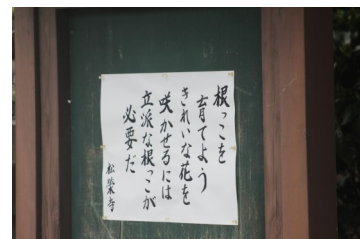 根っこを
育てよう
きれいな花を
咲かせるには
立派な根っこが
必要だ
松栄寺